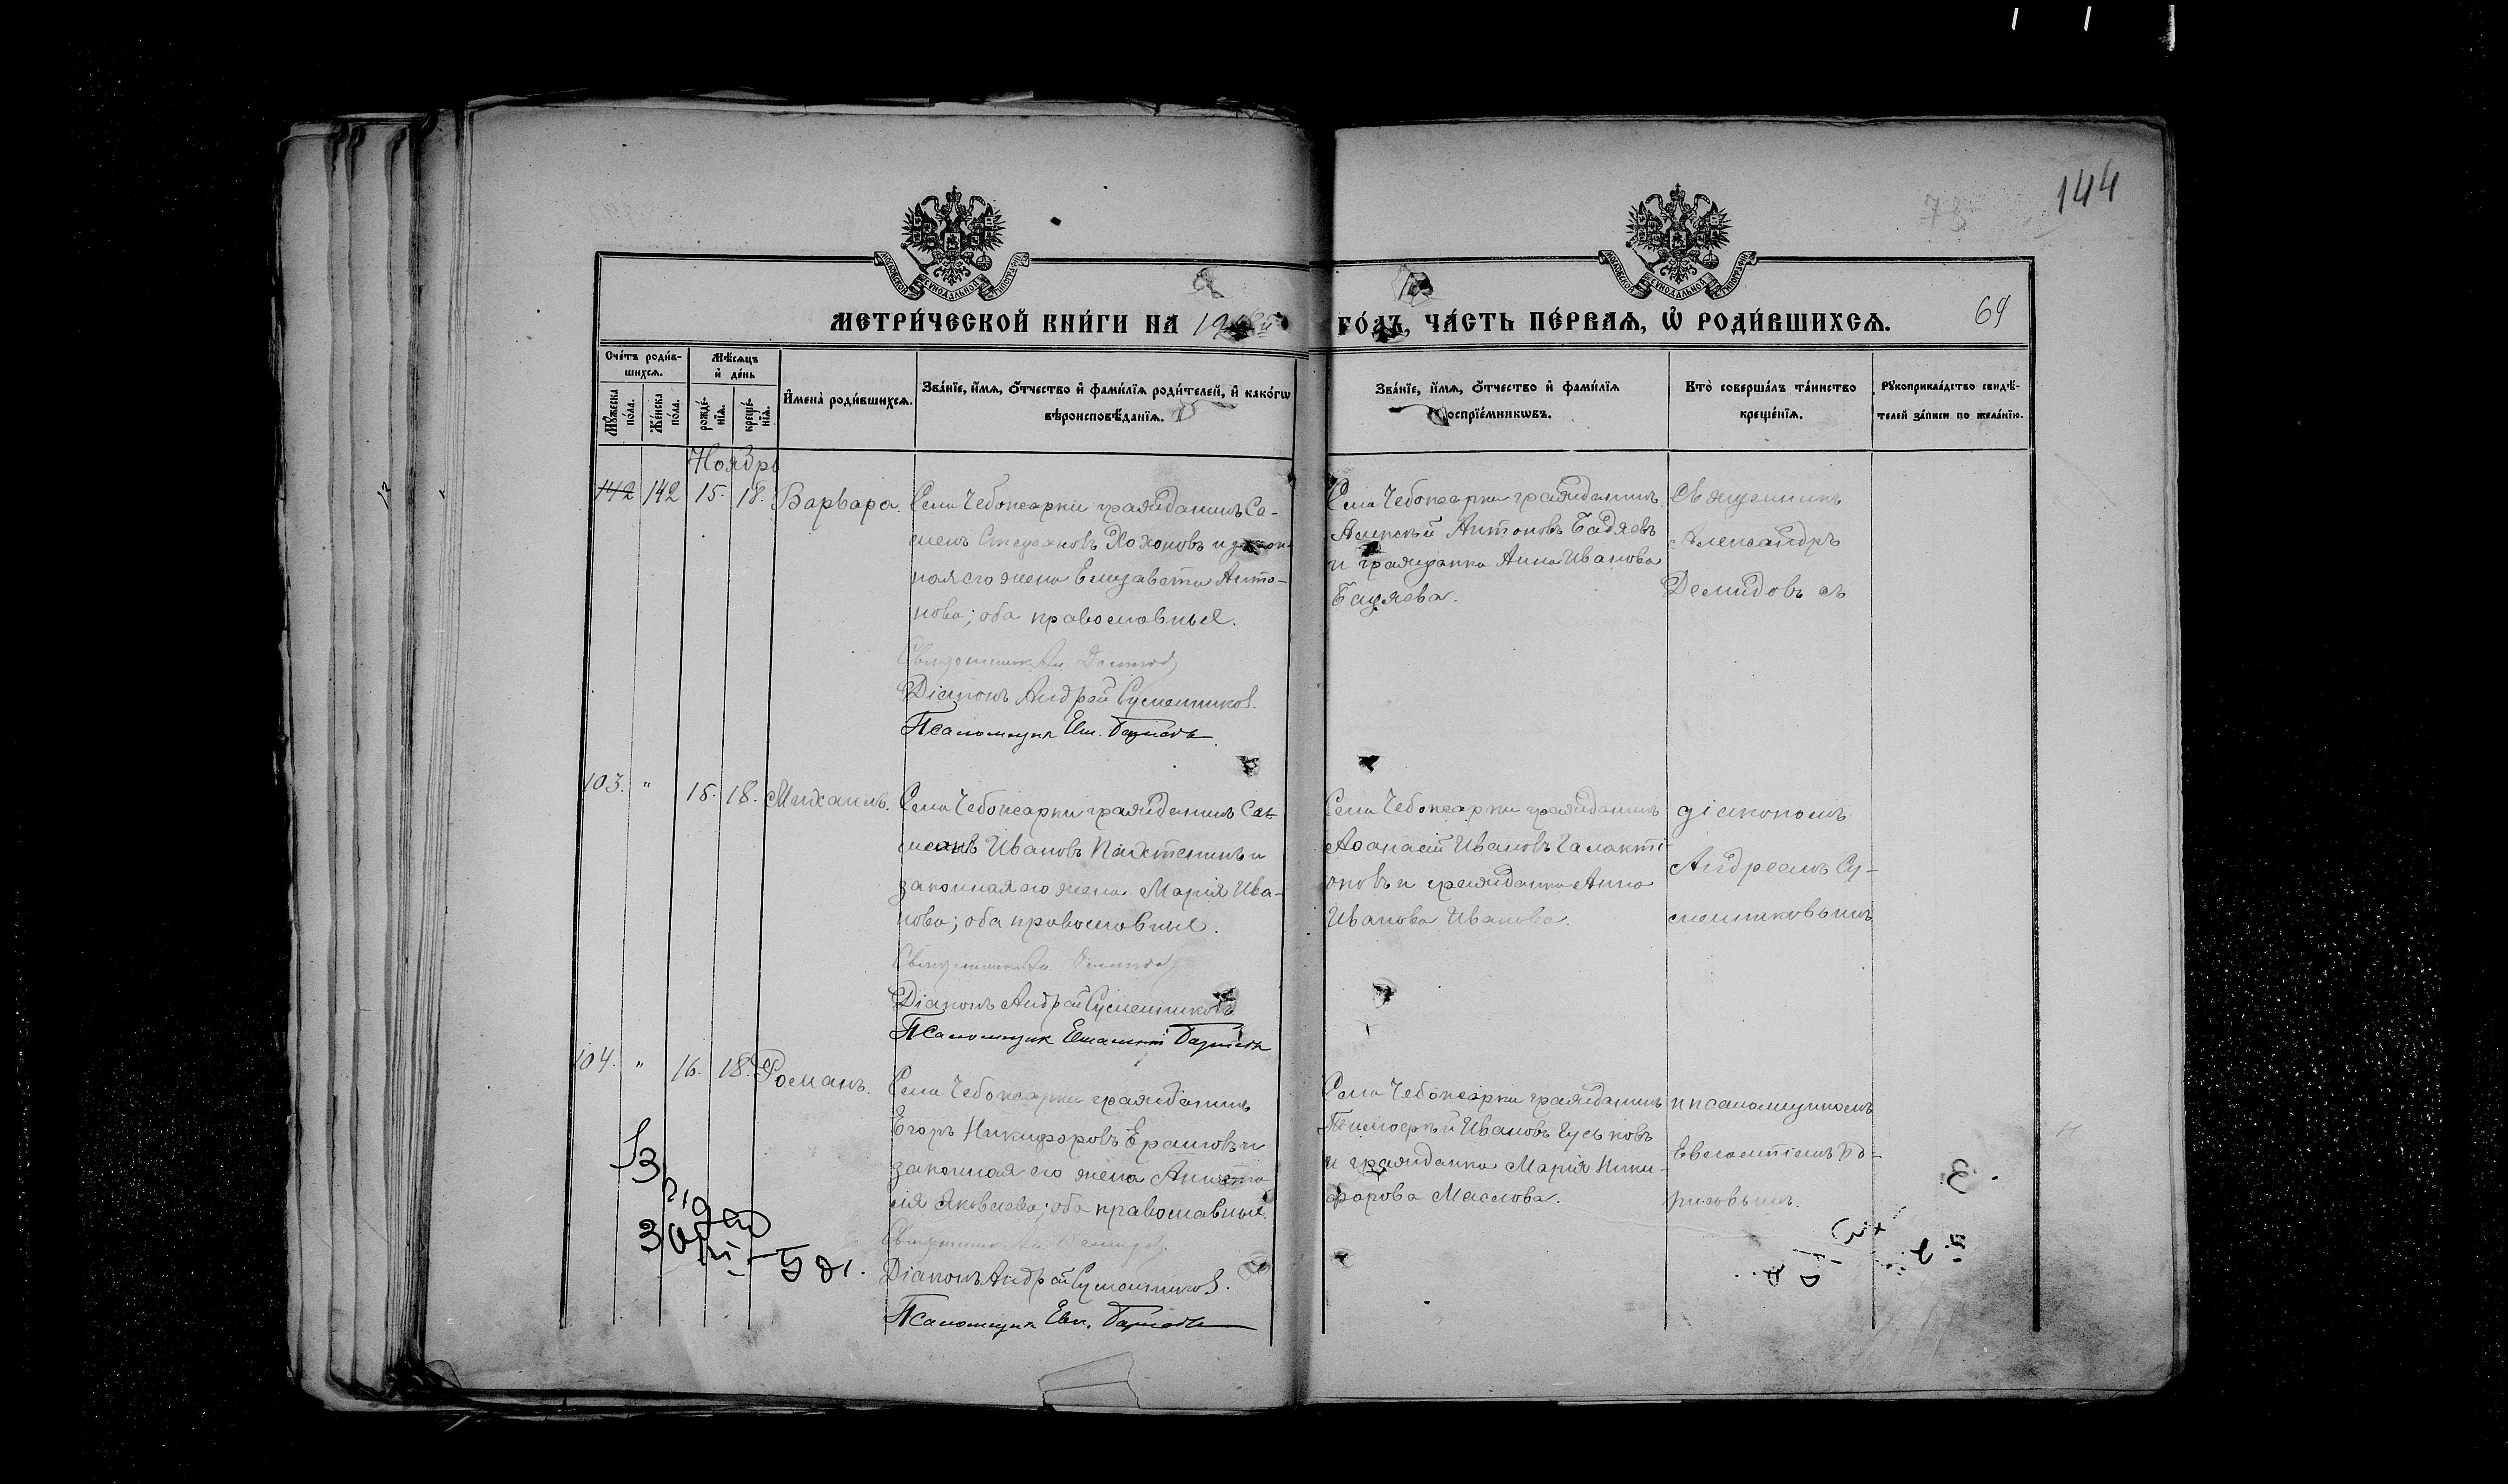 144
78
МЕТРИ́ЧЕСКОЙ КНИ́ГИ НА 191
ГО́ДЪ, ЧА́СТЬ ПЕ́РВАѦ, Ѡ҆ РОДИ́ВШИХСѦ.
69
Сче́тъ роди́в-
шихсѧ.
Мꙋ́жеска по́ла.
Же́нска по́ла.
Мѣ́сѧцъ
и҆ де́нь
рожде́-
нїѧ.
креще́-
нїѧ.
И҆мена̀ роди́вшихсѧ.
Зва́нїе, и҆́мѧ, ѻ҆́тчество и҆ фами́лїѧ роди́телей, и҆ како́гѡ
вѣроисповѣ́данїѧ.
Зва́нїе, и҆́мѧ, ѻ҆́тчество и҆ фами́лїѧ
воспрїе́мникѡвъ.
Кто̀ соверша́лъ та́инство
креще́нїѧ.
Рꙋкоприкла́дство свидѣ́-
телей за́писи по жела́нїю.
Ноябрь
142 142 15. 18. Варвара.
Села Чебоксарки гражданинъ Се-
менъ Стефановъ Хохоновъ и закон-
ная его жена Елизавета Анто-
нова; оба православные.
Священникъ Ал. Демидов
Діаконъ Андрей Сумешников.
Псаломщик Евл.
Села Чебоксарки гражданинъ
Алексѣй Антоновъ Бадяевъ
и гражданка Анна Иванова
Бадяева.
Священникъ
Александръ
Демидовъ съ
103. " 15. 18. Михаилъ.
Села Чебоксарки гражданинъ Се-
Ивановъ и
законная его жена Марія Ива-
нова; оба православные.
Священникъ Ал. Демидов
Діаконъ Андрей Сумешников
Псаломщик
Села Чебоксарки гражданинъ
Аѳанасій Ивановъ Галакті-
оновъ и гражданка Анна
Иванова Иванова.
діакономъ
Андреемъ Су-
мешниковымъ
104. " 16. 18. Романъ.
Села Чебоксарки гражданинъ
Егоръ Никифоровъ и
законная его жена Анаста-
сія Яковлева; оба православные.
Священникъ Ал. Демидов
Діаконъ Андрей Сумешников.
Псаломщик Евл.
Села Чебоксарки гражданинъ
Тимоѳей Ивановъ Гуськовъ
и гражданка Марія Ники-
форова Маслова.
и псаломщикомъ